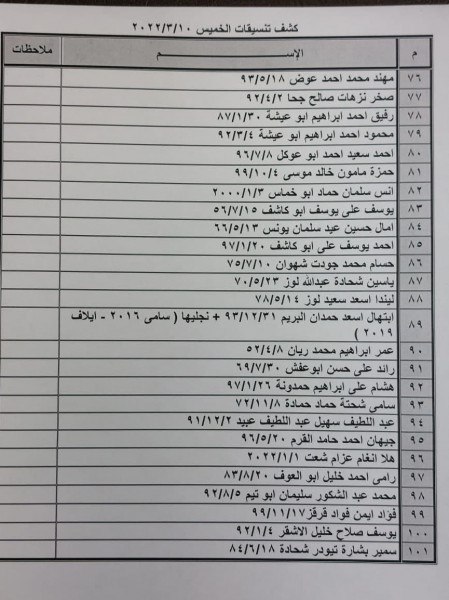 كشف تنسيقات الخميس ٢٠٢٢/٣/١٠
م الإســـــم ملاحظات
٧٦ مهند محمد احمد عوض ٩٣/٥/١٨
٧٧ صخر نزهات صالح جحا ٩٢/٤/٢
٧٨ رفيق احمد ابراهيم ابو عيشة ٨٧/١/٣٠
٧٩ محمود احمد ابراهيم ابو عيشة ٩٢/٣/٤
٨٠ احمد سعيد احمد ابو عوكل ٩٦/٧/٨
٨١ حمزة مامون خالد موسى ٩٩/١٠/٤
٨٢ انس سلمان حماد ابو خماس ٢٠٠٠/١/٣
٨٣ يوسف على يوسف ابو كاشف ٥٦/٧/١٥
٨٤ امال حسين عيد سلمان يونس ٦٦/٥/١٣
٨٥ احمد يوسف على ابو كاشف ٩٧/١/٢٠
٨٦ حسام محمد جودت شهوان ٧٥/٧/١٠
٨٧ ياسين شحادة عبدالله لوز ٧٠/٥/٢٣
٨٨ ليندا اسعد سعيد لوز ٧٨/٥/١٤
٨٩ ابتهال اسعد حمدان البريم ٩٣/١٢/٣١ + نجليها ( سامى ٢٠١٦ - ايلاف
٢٠١٩ )
٩٠ عمر ابراهيم محمد ريان ٥٢/٤/٨
٩١ رائد على حسن ابوعفش ٦٩/٧/٣٠
٩٢ هشام على ابراهيم حمدونة ٩٧/١/٢٦
٩٣ سامى شحتة حماد حمادة ٧٢/١١/٨
٩٤ عبد اللطيف سهيل عبد اللطيف عبيد ٩١/١٢/٢
٩٥ جيهان احمد حامد القرم ٩٦/٥/٢٠
٩٦ هلا انغام عزام شعت ٢٠٢٢/١/١
٩٧ رامى احمد خليل ابو العوف ٨٣/٨/٢٠
٩٨ محمد عبد الشكور سليمان ابو تيم ٩٢/٨/٥
٩٩ فؤاد ايمن فواد قرقز ٩٩/١١/١٧
١٠٠ يوسف صلاح خليل الاشقر ٩٢/١/٤
١٠١ سمير بشارة تيودر شحادة ٨٤/٦/١٨